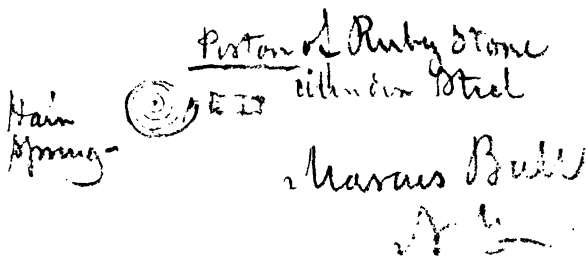 Piston of Ruby Stone
cilinder Steel
Hair
Spring
Marcus Bull